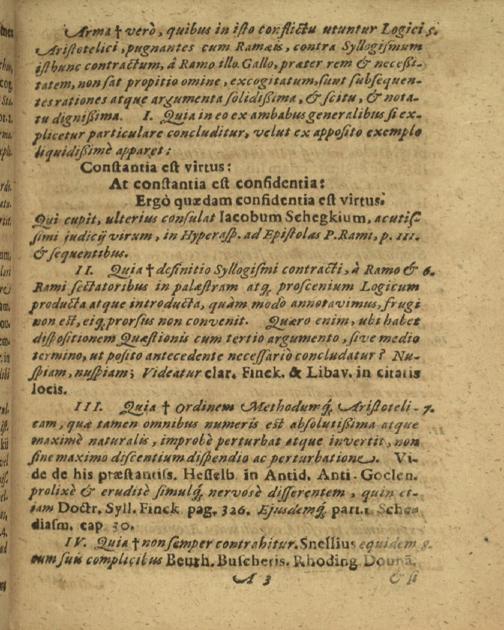 Arma † verò, quibus in isto conflictu utuntur Logici 5.
Aristotelici, pugnantes cum Ramæis, contra Syllogismum
istbunc contractum, à Ramo illo Gallo, præter rem & necessi-
tatem, non sat propitio omine, excogitatum, sunt subsequen-
tes rationes atque argumenta solidissima, & scitu, & nota-
tu dignissima. I. Quia in eo ex ambabus generalibus si ex-
plicetur particulare concluditur, velut ex apposito exemplo
liquidissimè apparet:
Constantia est virtus:
At constantia est confidentia:
Ergò quædam confidentia est virtus.
Qui cupit, ulterius consulat Iacobum Schegkium, acutis-
simi judicij virum, in Hyperasp. ad Epistolas P. Rami, p. 111.
& sequentibus.
II. Quia † definitio Syllogismi contracti, à Ramo & 6.
Rami sectatoribus in palæstram atq; proscenium Logicum
producta atque introducta, quàm modo annotavimus, frugi
non est, eiq; prorsus non convenit. Quæro enim, ubi habet
dispositionem Quæstionis cum tertio argumento, sive medio
termino, ut posito antecedente necessariò concludatur? Nu-
spiam, nuspiam; Videatur clar. Finck. & Libav. in citatis
locis.
III. Quia † Ordinem Methodumq; Aristoteli- 7.
eam, quæ tamen omnibus numeris est absolutissima atque
maximè naturalis, improbè perturbat atque invertit, non
sine maximo discentium dispendio ac perturbatione. Vi-
de de his præstantiss. Hesselb. in Antid. Anti-Goclen.
prolixè & eruditè simulq; nervosè disserentem, quin et-
iam Doctr. Syll. Finck. pag. 326. Ejusdemq; part. 1. Sche-
diasm. cap. 30.
IV. Quia † non semper contrahitur. Snellius equidem 8.
cum suis complicibus Beurh. Buscheris. Rhoding. Douna.
A 3